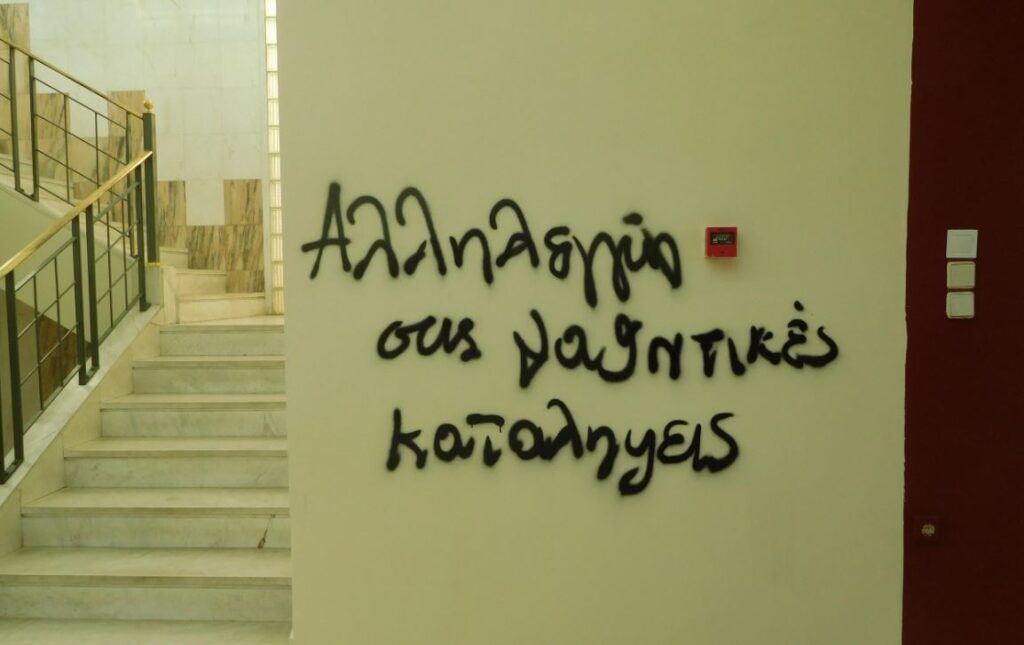 Αλληλεγγύη
στις μαθητικές
καταληψεις